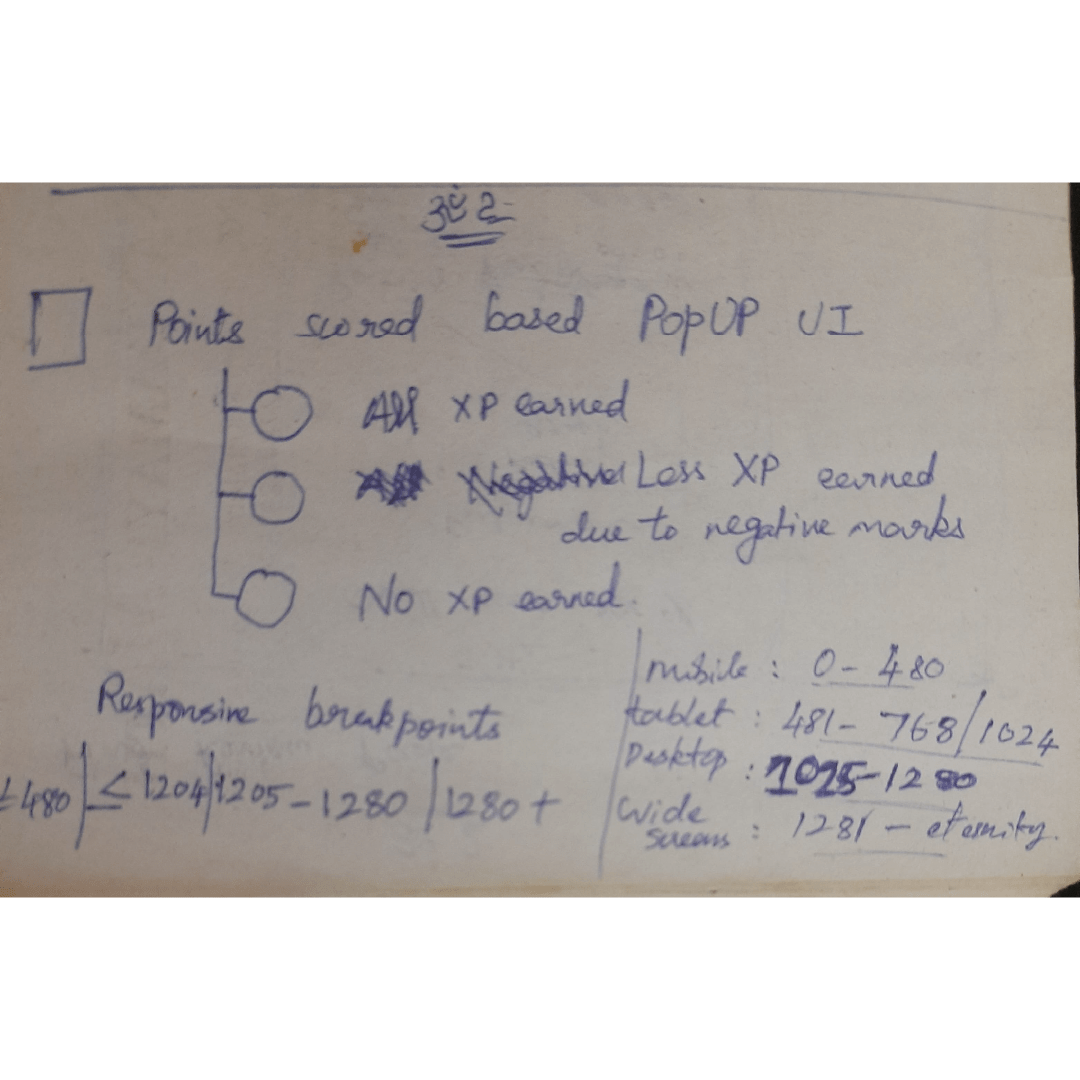 Points scored based PopUP UI
All XP earned
Less XP earned
due to negative marks
No XP earned.
Responsive breakpoints
≤480 | ≤ 1204 | 1205 - 1280 | 1280 +
mobile : 0 - 480
tablet : 481 - 768 / 1024
Desktop : 1025 - 1280
Wide
Screens : 1281 - eternity.